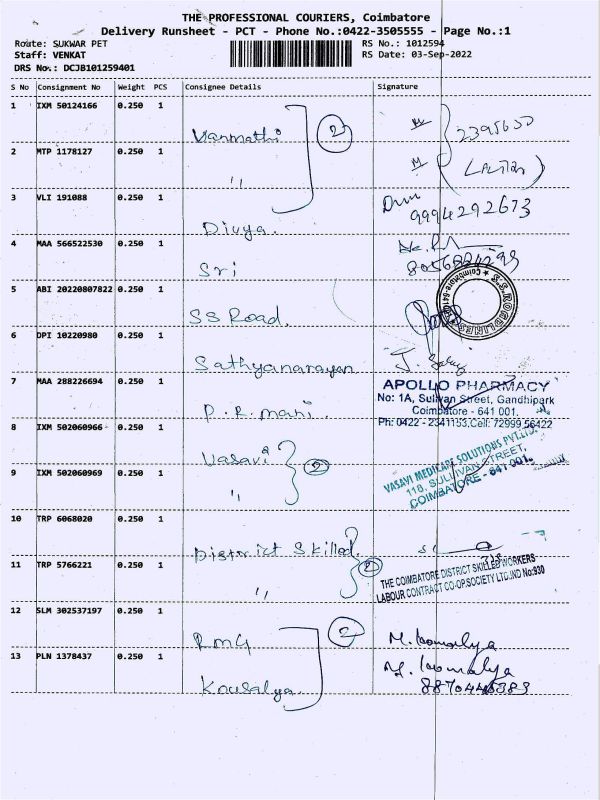 THE PROFESSIONAL COURIERS, Coimbatore
Delivery Runsheet - PCT - Phone No.:0422-3505555 - Page No.:1
Route: SUKWAR PET
RS No.: 1012594
Staff: VENKAT
RS Date: 03-Sep-2022
DRS No.: DCJB101259401
S No Consignment No Weight PCS Consignee Details Signature
1 IXM 50124166 0.250 1 Vanmathi 2 2395630
2 MTP 1178127 0.250 1 ,,
3 VLI 191088 0.250 1 Divya. 9994292673
4 MAA 566522530 0.250 1 Sri
5 ABI 20220807822 0.250 1 SS Road. S.S. ROADLINES ★ Coimbatore-641
6 DPI 10220980 0.250 1 Sathyanarayan
7 MAA 288226694 0.250 1 P.R. mani.
APOLLO PHARMACY
No: 1A, Sullivan Street, Gandhipark
Coimbatore - 641 001.
Ph: 0422 - 2341153.Cell: 72999 56422
8 IXM 502060966 0.250 1 Vasavi 2
9 IXM 502060969 0.250 1 ,,
VASAVI MEDICARE SOLUTIONS PVT.LTD.
118, SULLIVAN STREET,
COIMBATORE - 641 001.
10 TRP 6068020 0.250 1 District Skilled. 2
11 TRP 5766221 0.250 1 ,,
THE COIMBATORE DISTRICT SKILLED WORKERS
LABOUR CONTRACT CO-OP.SOCIETY LTD.IND No:930
12 SLM 302537197 0.250 1 RMG 2 M. Komalya
13 PLN 1378437 0.250 1 Kousalya. M. Komalya